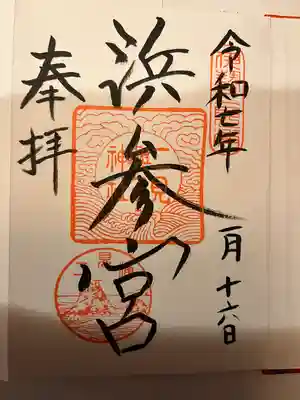 令和七年
一月十六日
浜参宮
奉拝
二見
興玉
神社